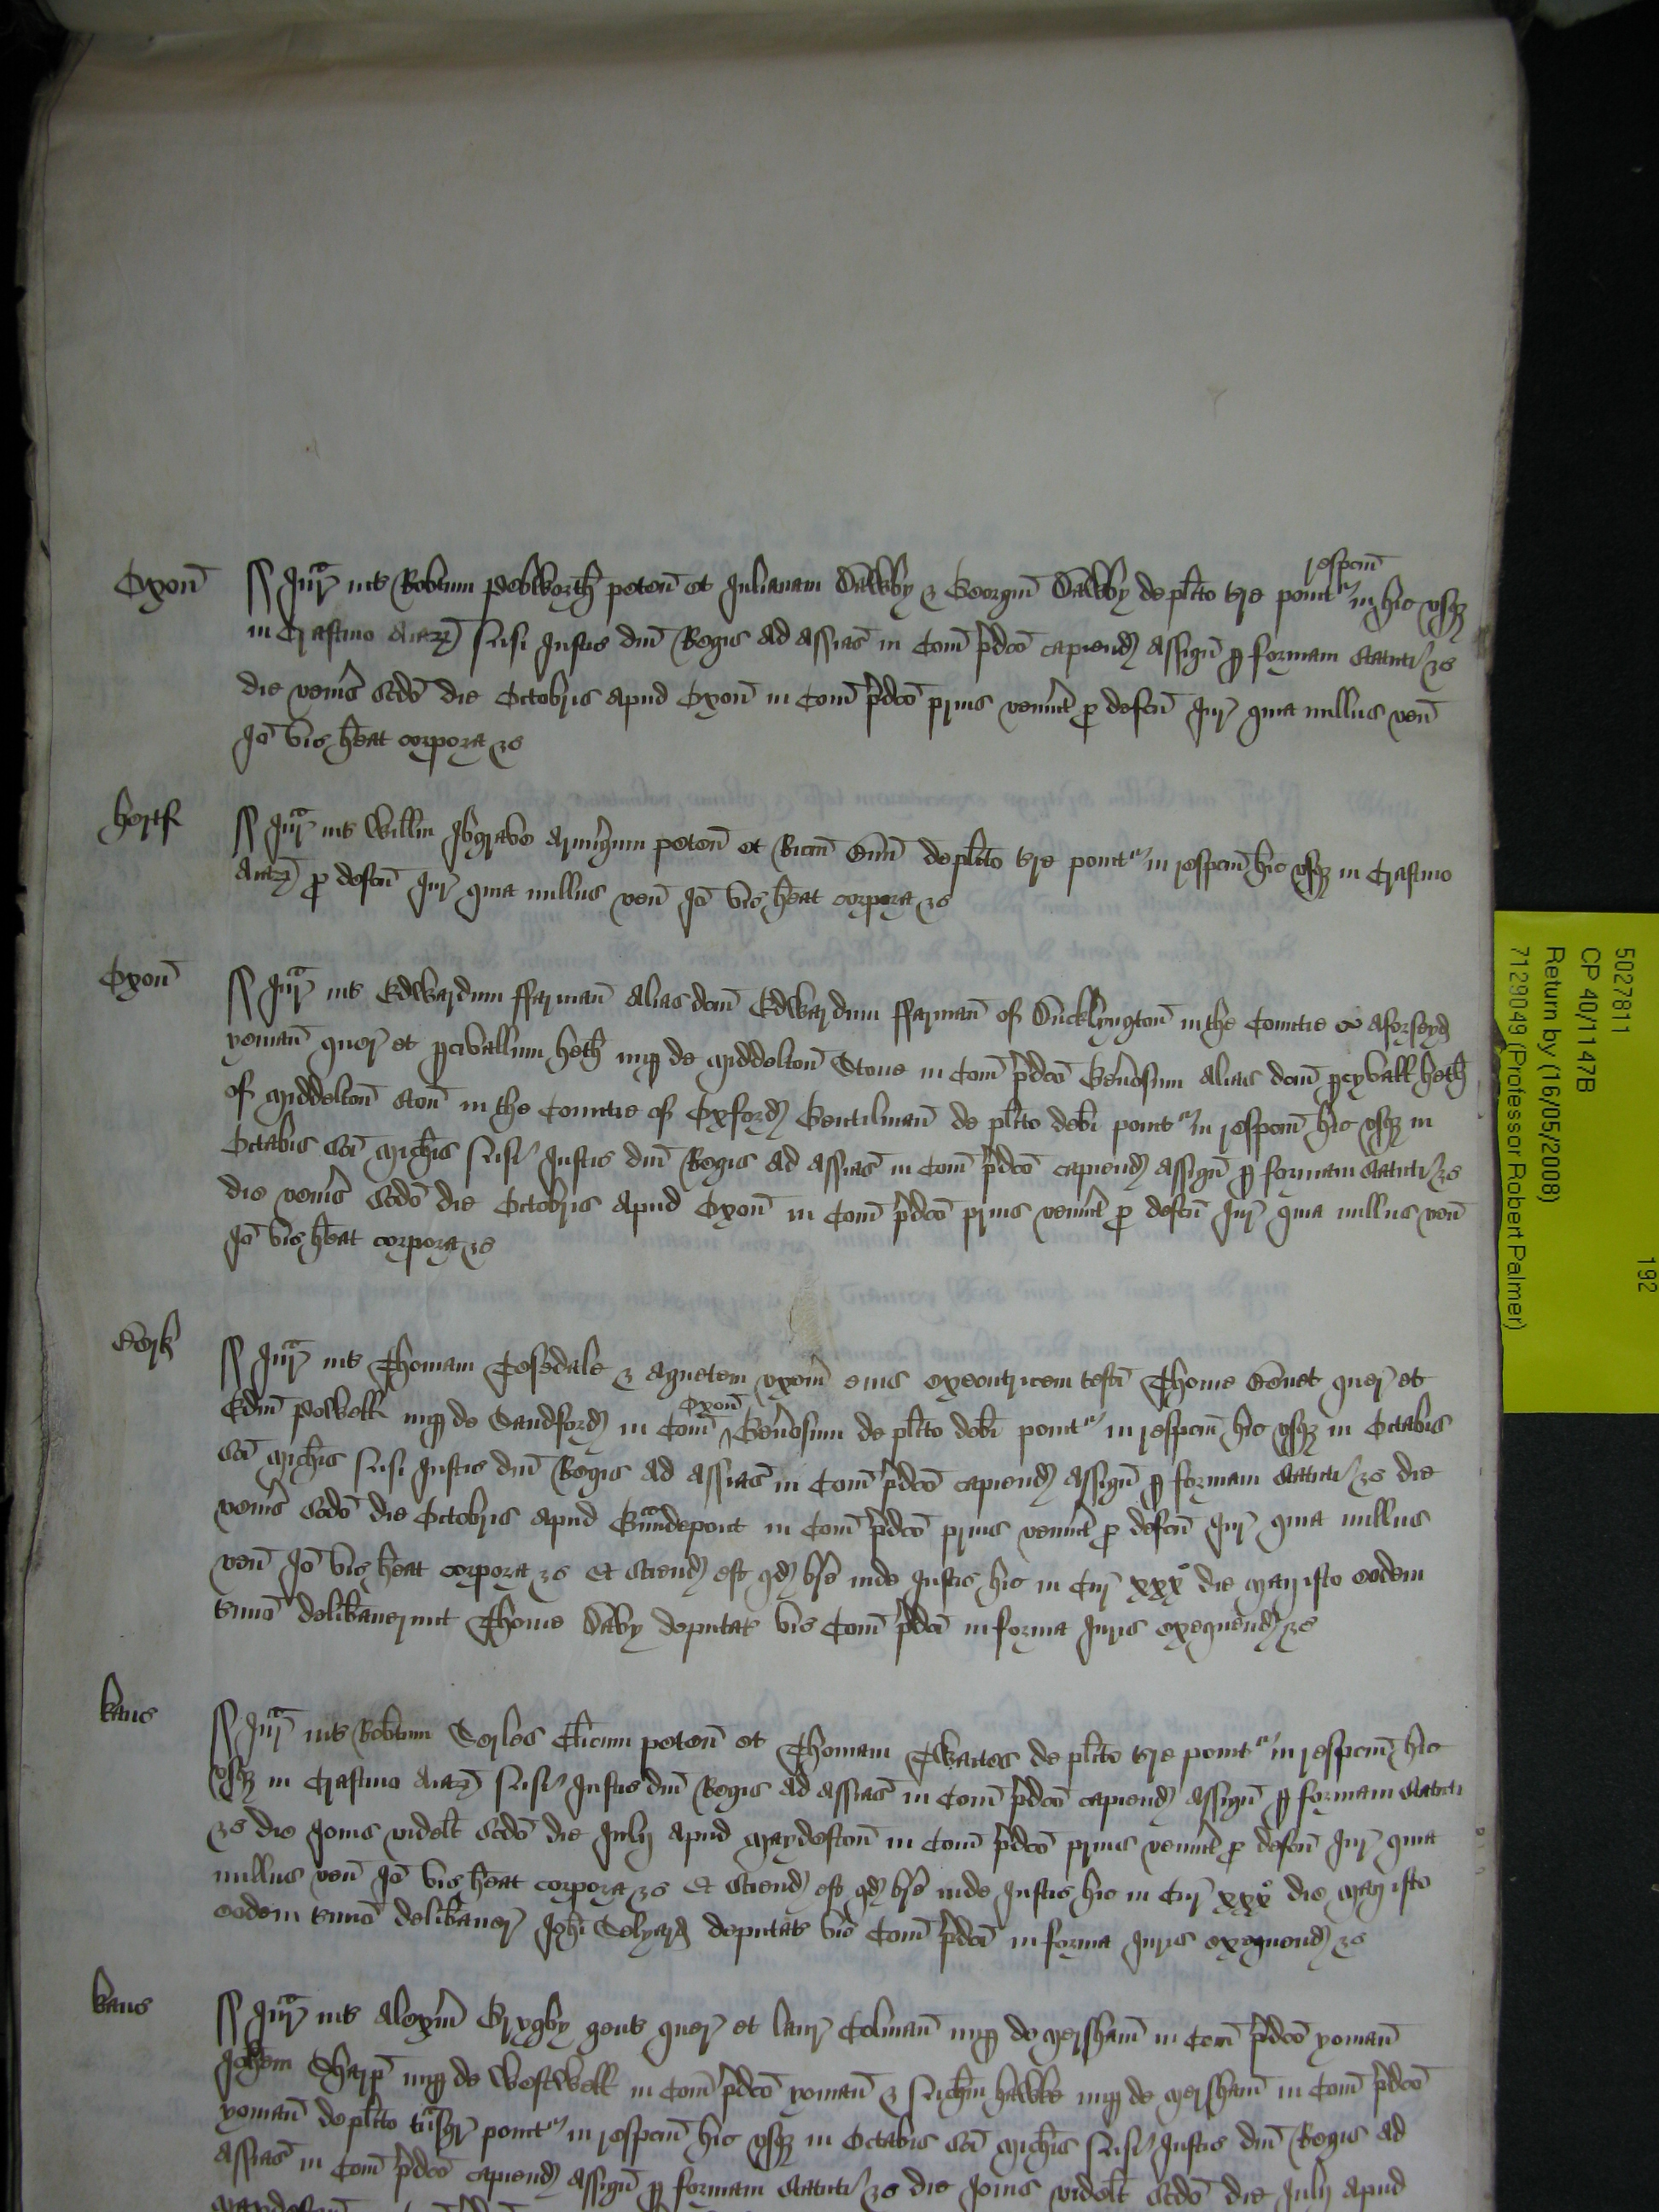 Oxon̄ Jur̄ int̄ Rob̄tum Pebworth̄ peten̄ et Julianam Dalkby & Georgiū Dalkby de pl̄ito tr̄e ponit̄ʳ in respcm̄ hic usq₃
in Crastino Aiar̄ Nisi Justic̄ dn̄i Regis ad assīas in Com̄ p̄dc̄o capiend̄ assign̄ ꝑ formam statuti &c̄
die ven̄is scd̄o die Octobris apud Oxon̄ in Com̄ p̄dc̄o prius ven̄int ꝓ defc̄u Jur̄ quia nullus ven̄
Jō vic̄ h̄eat corpora &c̄
Hertf̄ Jur̄ int̄ Will̄m armig̃um peten̄ et Ric̄m de pl̄ito tr̄e ponit̄ʳ in respcm̄ hic usq₃ in Crastino
Aiar̄ ꝓ defc̄u Jur̄ quia nullus ven̄ Jō vic̄ h̄eat corpora &c̄
Oxon̄ Jur̄ int̄ Edwardum ffarman̄ alias dcm̄ Edwardum ffarman̄ of Ducklyngton̄ in the Countie aforseyd
yoman̄ quer̄ et ꝑcivallum heth̄ nuꝑ de Middelton̄ Stone in Com̄ p̄dc̄o Gen̄osum alias dcm̄ ꝑcyvall heth̄
of Middelton̄ Ston̄ in the Countie of Oxford̄ Gentilman̄ de pl̄ito deb̄i ponit̄ʳ in respcm̄ hic usq₃ in
Octabis sc̄i Mich̄is Nisi Justic̄ dn̄i Regis ad assīas in Com̄ p̄dc̄o capiend̄ assign̄ ꝑ formam statuti &c̄
die ven̄is scd̄o die Octobris apud Oxon̄ in Com̄ p̄dc̄o prius ven̄int ꝓ defc̄u Jur̄ quia nullus ven̄
Jō vic̄ h̄eat corpora &c̄
Jur̄ int̄ Thomam Tesedale & Agnetem uxorem̄ eius executricem test̄i Thome quer̄ et
Edm̄ Powell nuꝑ de Sandford̄ in Com̄ Oxon̄ Gen̄osum de pl̄ito deb̄i ponit̄ʳ in respcm̄ hic usq₃ in Octabis
sc̄i Mich̄is Nisi Justic̄ dn̄i Regis ad assīas in Com̄ p̄dc̄o capiend̄ assign̄ ꝑ formam statuti &c̄ die
ven̄is scd̄o die Octobris apud Gᵃundepont in Com̄ p̄dc̄o prius ven̄int ꝓ defc̄u Jur̄ quia nullus
ven̄ Jō vic̄ h̄eat corpora &c̄ Et sciend̄ est qd̄ br̄e inde Justic̄ hic in Cur̄ xxx° die Maii isto eodem
t̄mino delib̄auerunt Thome Daby deputat̄ vic̄ Com̄ p̄dc̄i in forma Juris exequend̄ &c̄
kanc̄ Jur̄ int̄ Rob̄tum Serles Cl̄icum peten̄ et Thomam Twaites de pl̄ito tr̄e ponit̄ʳ in respcm̄ hic
usq₃ in Crastino Aiar̄ Nisi Justic̄ dn̄i Regis ad assīas in Com̄ p̄dc̄o capiend̄ assign̄ ꝑ formam statuti
&c̄ die Jouis videlt̄ scd̄o die Julij apud Maydeston̄ in Com̄ p̄dc̄o prius ven̄int ꝓ defc̄u Jur̄ quia
nullus ven̄ Jō vic̄ h̄eat corpora &c̄ Et sciend̄ est qd̄ br̄e inde Justic̄ hic in Cur̄ xxx° die Maii isto
eodem t̄mino delib̄auer̄ Joh̄i Selyard̄ deputat̄ vic̄ Com̄ p̄dc̄i in forma Juris exequend̄ &c̄
kanc̄ Jur̄ int̄ Alex̄m Grygby gent̄ quer̄ et Laur̄ Colman̄ nuꝑ de Mersham̄ in Com̄ p̄dc̄o yoman̄
Joh̄em Sharp̄ nuꝑ de Westwell in Com̄ p̄dc̄o yoman̄ & Nich̄m hawke nuꝑ de Mersham̄ in Com̄ p̄dc̄o
yoman̄ de pl̄ito tᵃnsgr̄ ponit̄ʳ in respcm̄ hic usq₃ in Octabis sc̄i Mich̄is Nisi Justic̄ dn̄i Regis ad
assīas in Com̄ p̄dc̄o capiend̄ assign̄ ꝑ formam statuti &c̄ die Jouis videlt̄ scd̄o die Julij apud
5027811
CP 40/1147B
Return by (16/05/2008)
7129049 (Professor Robert Palmer)
192